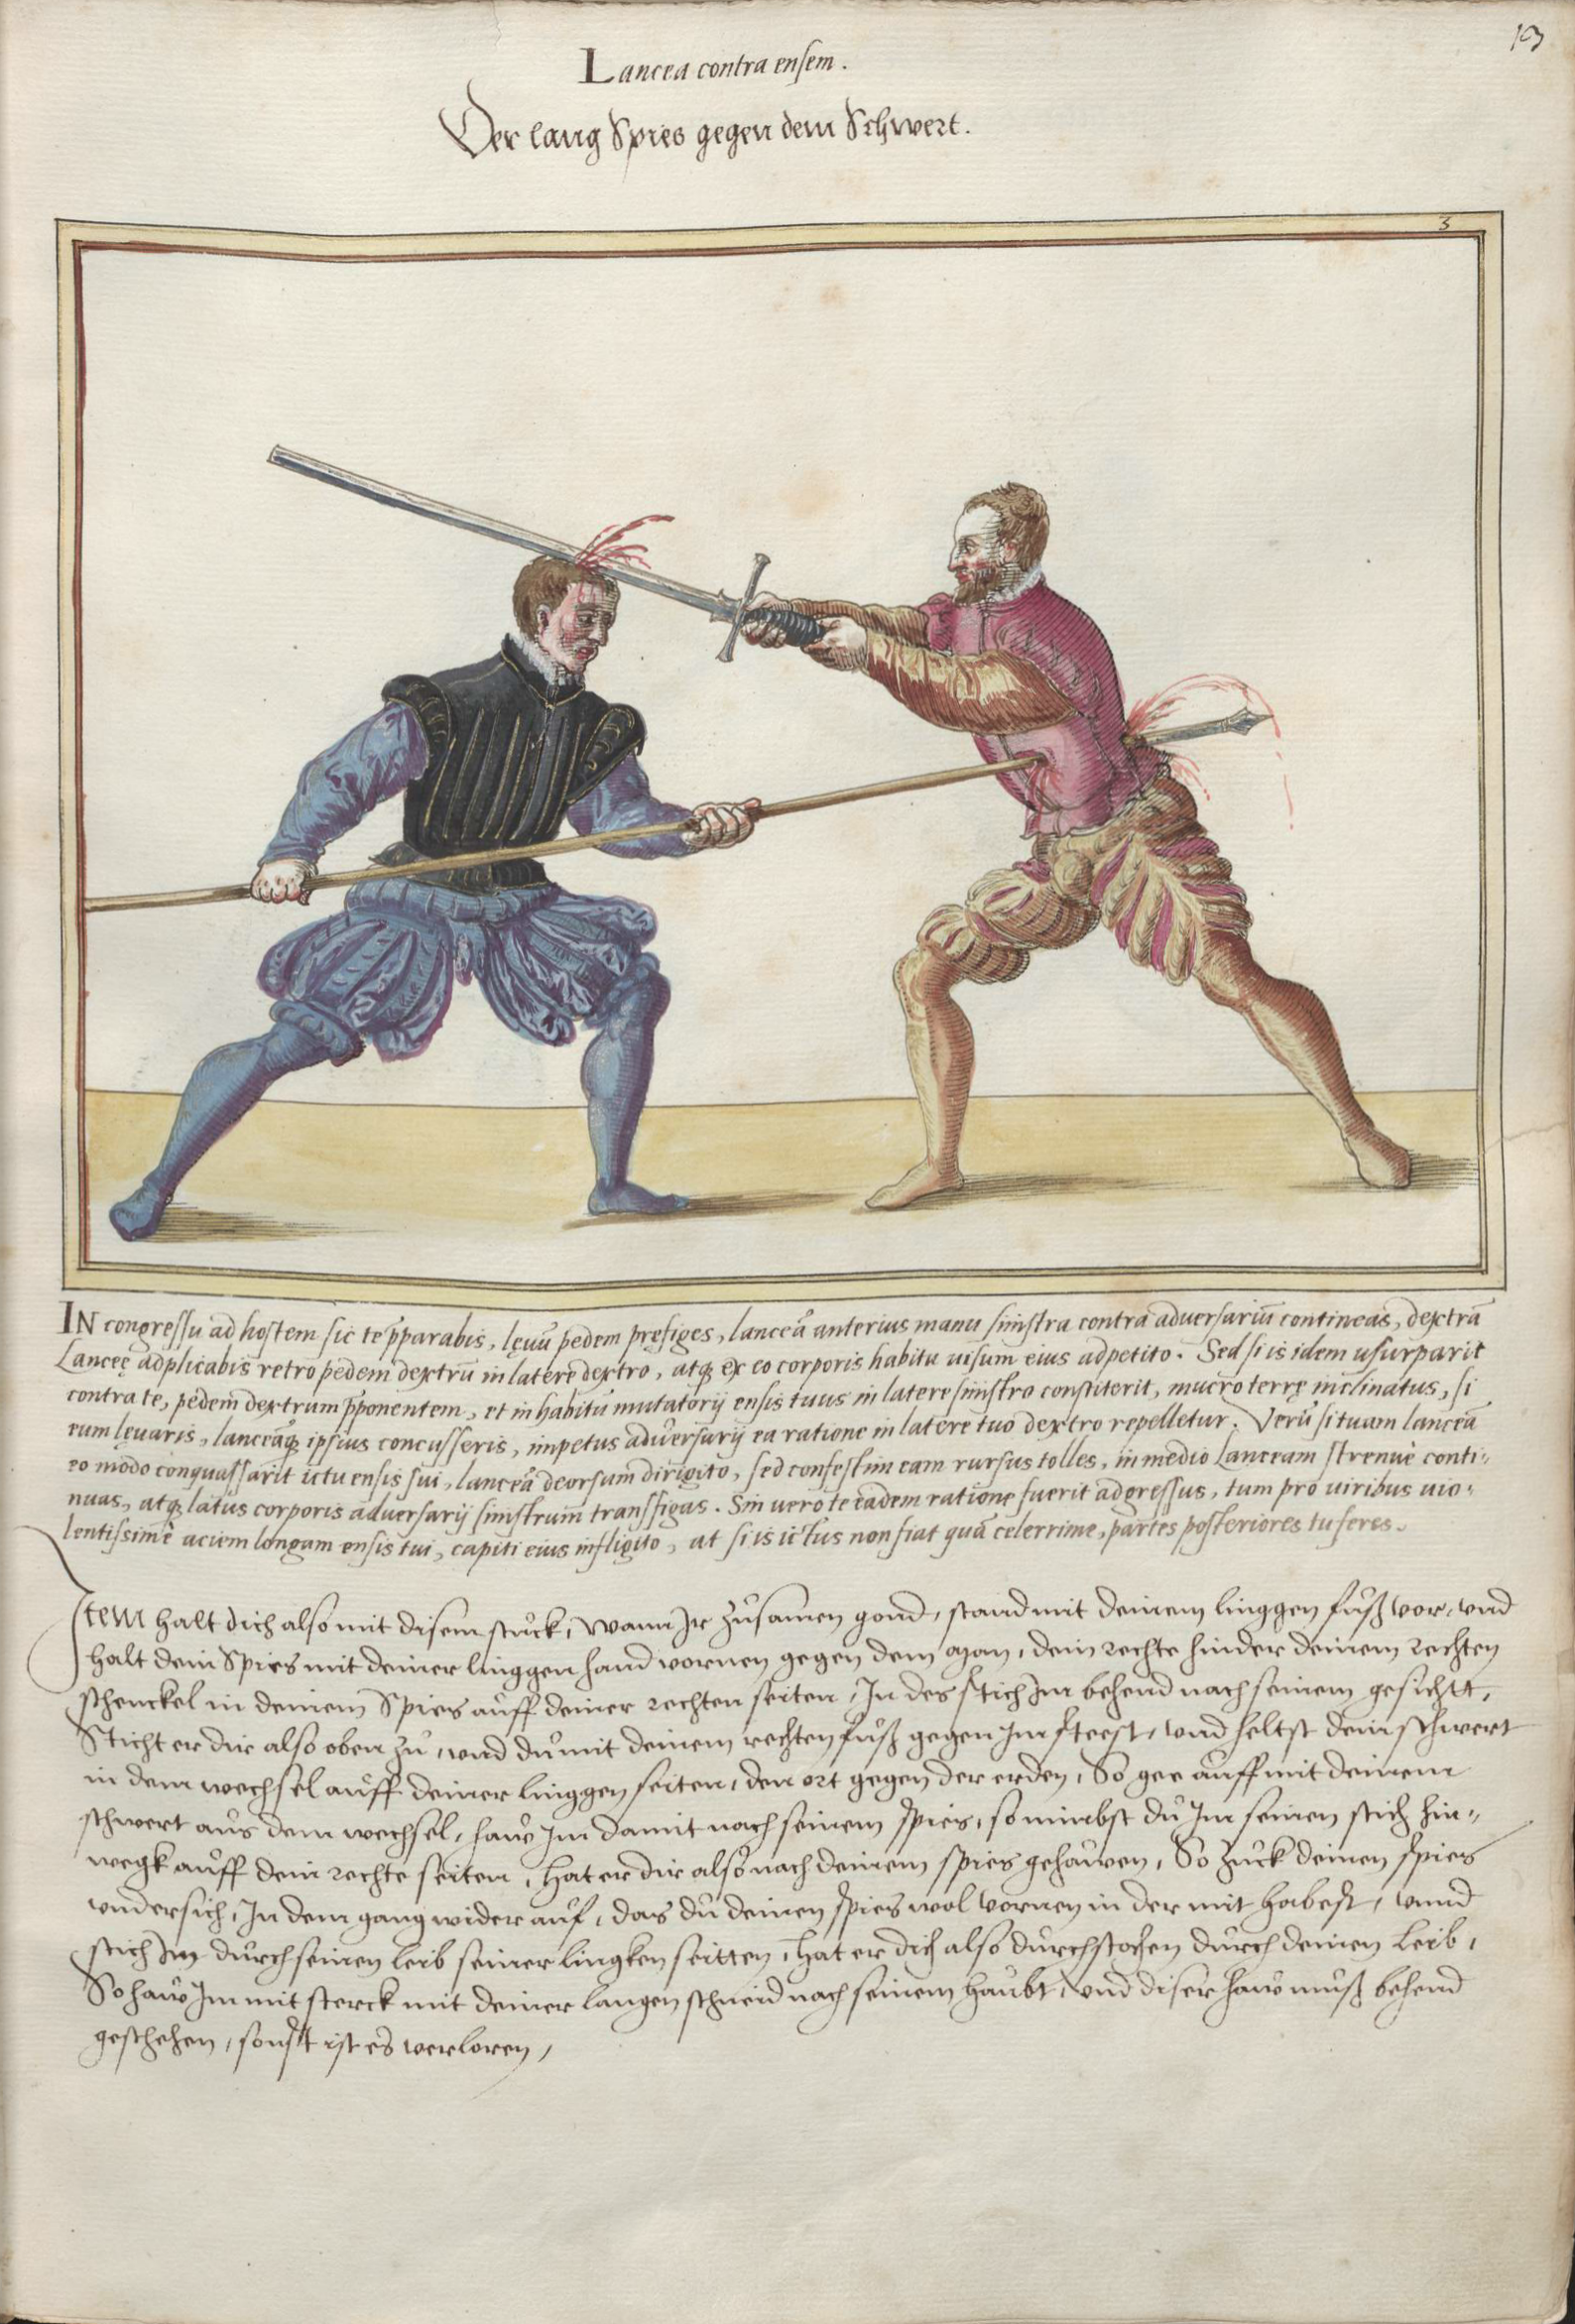 103
Lancea contra ensem.
Der lang Spies gegen dem Schwert.
3
IN congressu ad hostem sic te p̄parabis, lęvū pedem prefiges, lanceā anterius manu sinistra contra adversariū contineas, dextrā
Lanceę adplicabis retro pedem dextrū in latere dextro, atq; ex eo corporis habitu visum eius adpetito. Sed si is idem usurparit
contra te, pedem dextrum p̄ponentem, et in habitū mutatorij ensis tuus in latere sinistro constiterit, mucro terrę inclinatus, si
eum lęvaris, lanceāq; ipsius concusseris, impetus adversarij ea ratione in latere tuo dextro repelletur. Verū si tuam lanceā
eo modo conquassarit ictu ensis sui, lanceā deorsum dirigito, sed confestim eam rursus tolles, in medio Lanceam strenuè conti-
nuas, atq; latus corporis adversarij sinistrum transfigas. Sin vero te eadem ratione fuerit adgressus, tum pro viribus vio-
lentissimè aciem longam ensis tui, capiti eius infligito, at si is ictus non fiat quā celerrime, partes posteriores tu feres.
Item halt dich also mit disem stuck, Wann Ir zusamen gond, stand mit deinem linggen fuß vor, und
halt dein Spies mit deiner linggen hand vornen gegen dem man, dein rechte hinder deinem rechten
schenckel in deinem Spies auff deiner rechten seiten, In des stich Im behend nach seinem gesichtt,
Sticht er dir also oben zu, und du mit deinem rechten fuß gegen Im steest, und heltst dein schwert
in dem wechsel auff deiner linggen seiten, den ort gegen der erden, So gee auff mit deinem
schwert aus dem wechsel, haw Im damit nach seinem spies, so nimbst du Im seinen stich hin-
wegk auff dein rechte seiten, Hat er dir also nach deinem spies gehawen, So zuck deinen spies
undersich, In dem gang wider auf, das du deinen spies wol vornen in der mit habest, unnd
stich Im durch seinen leib seiner lingken seitten, Hat er dich also durchstochen durch deinen Leib,
So haw Im mit sterck mit deiner langen schneid nach seinem haubt, und diser haw muß behend
geschehen, sonst ist es verloren,